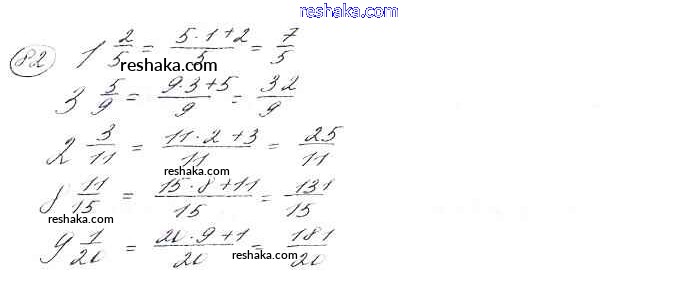 reshaka.com
82 1 2/5 = (5·1+2)/5 = 7/5
reshaka.com
3 5/9 = (9·3+5)/9 = 32/9
reshaka.com
2 3/11 = (11·2+3)/11 = 25/11
reshaka.com
8 11/15 = (15·8+11)/15 = 131/15
reshaka.com
9 1/20 = (20·9+1)/20 = 181/20
reshaka.com
reshaka.com